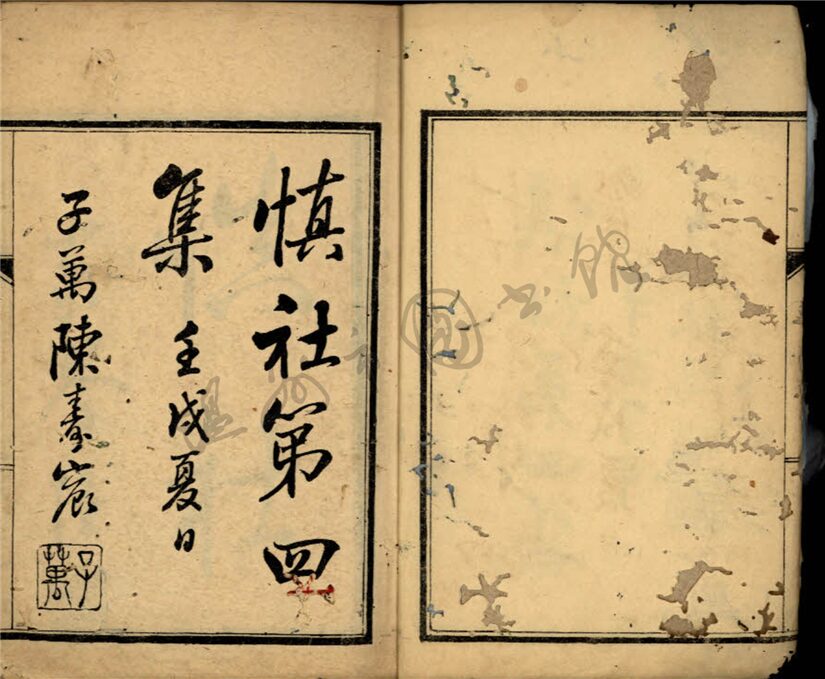 慎社第四
集 壬戌夏日
子萬陳壽宸
子萬